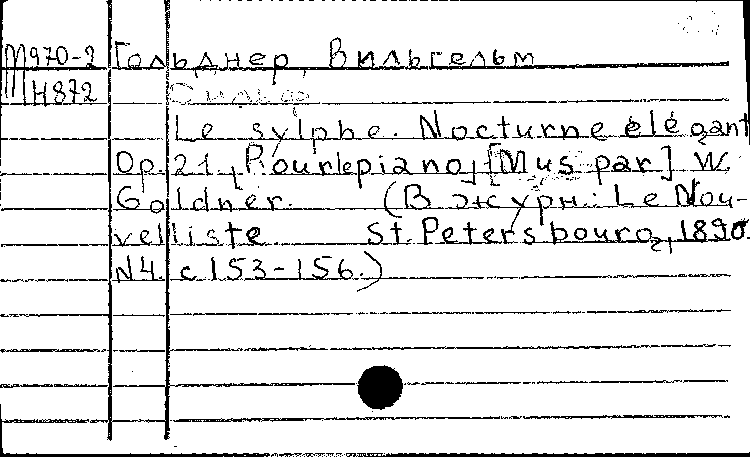 М970-2 Гольднер, Вильгельм
Н872 Сильф
Le sylphe. Nocturne élégant
Op. 21, [Pour le piano] [Mus. par] W.
Goldner. (В журн.: Le Nou-
velliste St. Petersbourg, 1890.
N4. с 153-156.)